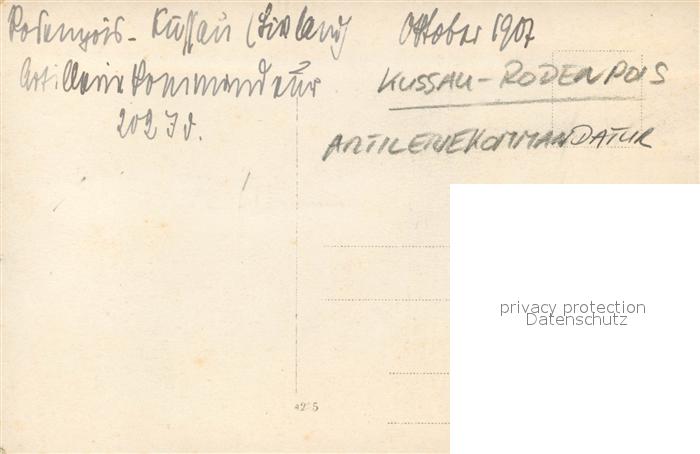 Rodenpois - Kussau (Livland) Oktober 1917
Artilleriekommandeur
202 J d.
KUSSAU - RODENPOIS
ARTILERIEKOMMANDATUR
425
privacy protection
Datenschutz